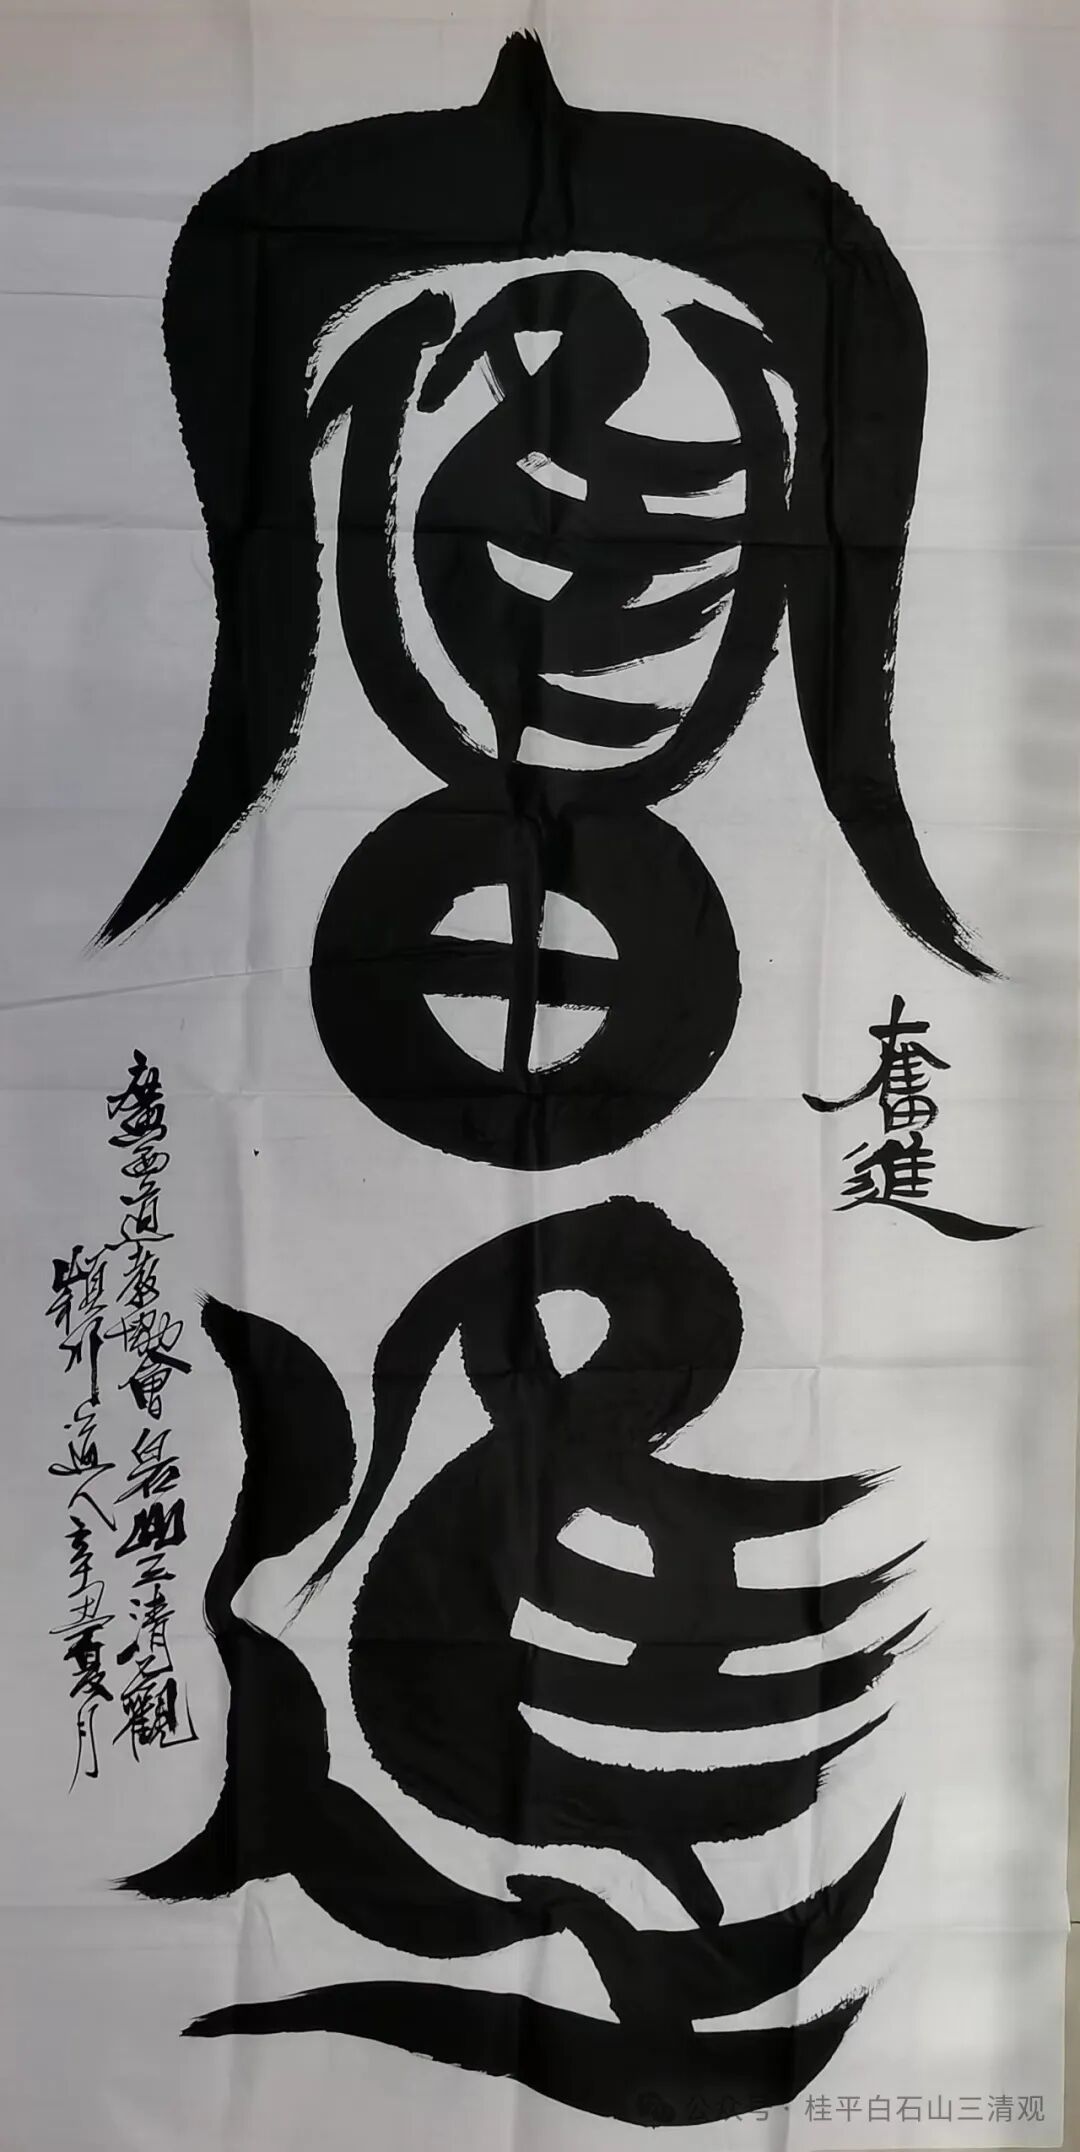 奮進
奮進
廣西道教協會白石山三清觀
道人辛丑夏月
公众号·桂平白石山三清观